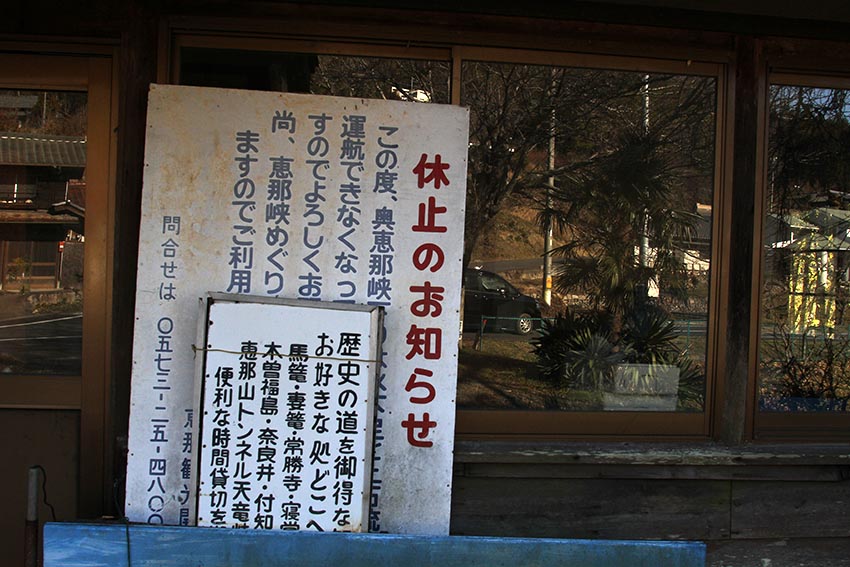 休止のお知らせ
この度、奥恵那峡
運航できなくなっ
すのでよろしくお
尚、恵那峡めぐり
ますのでご利用
問合せは 〇五七三-二五-四八〇
歴史の道を御得な
お好きな処どこへ
馬篭・妻篭・常勝寺・寝覚
木曽福島・奈良井・付知
恵那山トンネル天竜峡
便利な時間貸切を